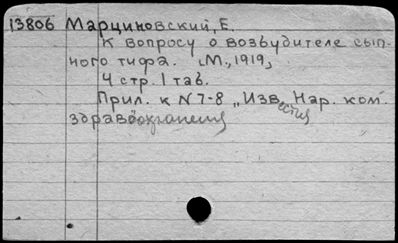 13806 Марциновский, Е.
К вопросу о возбудителе сып-
ного тифа. [М., 1919]
4 стр. 1 таб.
Прил. к N 7-8 „Известия Нар. ком.
здравоохранения